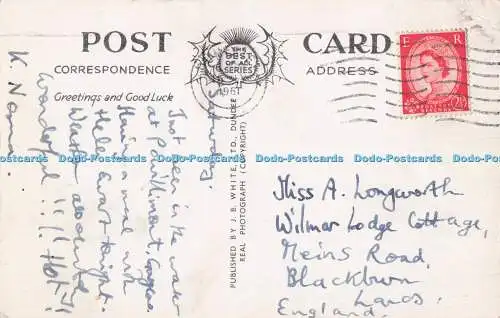 POST CARD
CORRESPONDENCE
ADDRESS
Greetings and Good Luck
THE
BEST
OF ALL
SERIES
1961
E R
2½D
PUBLISHED BY J. B. WHITE, LTD., DUNDEE
REAL PHOTOGRAPH (COPYRIGHT)
Saturday
Just been in the water
at
Having a meal with
Helen Ewart tonight.
Weather absolutely
wonderful !!! Hot!!
K. Norma.
Miss A. Longworth
Wilmar Lodge Cottage,
Meins Road,
Blackburn
Lancs.
England.
Dodo-Postcards Dodo-Postcards Dodo-Postcards Dodo-Postcards Dodo-Postcards